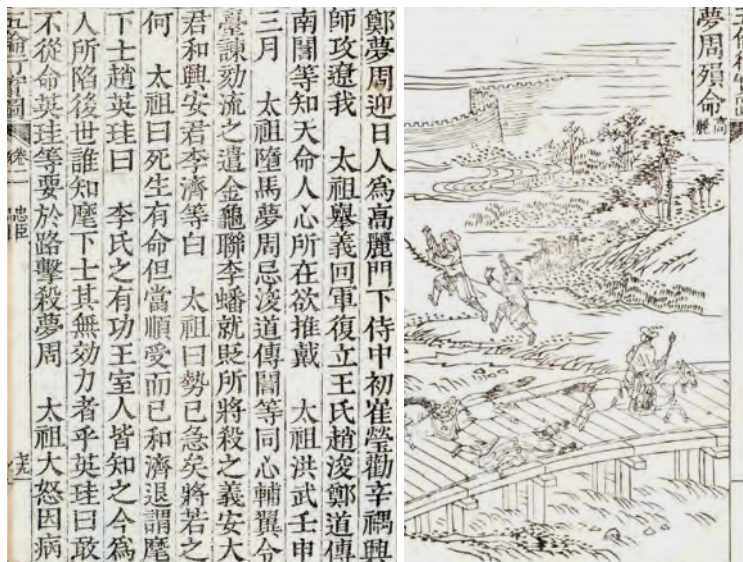 夢周殞命 高麗
鄭夢周迎日人爲高麗門下侍中初崔瑩勸辛禑興
師攻遼我 太祖擧義回軍復立王氏趙浚鄭道傳
南誾等知天命人心所在欲推戴 太祖洪武壬申
三月 太祖墮馬夢周忌浚道傳誾等同心輔翼令
臺諫劾流之遣金龜聯李蟠就貶所將殺之義安大
君和興安君李濟等白 太祖曰勢已急矣將若之
何 太祖曰死生有命但當順受而已和濟退謂麾
下士趙英珪曰 李氏之有功王室人皆知之今爲
人所陷後世誰知麾下士其無効力者乎英珪曰敢
不從命英珪等要於路擊殺夢周 太祖大怒因病
卷二 忠臣